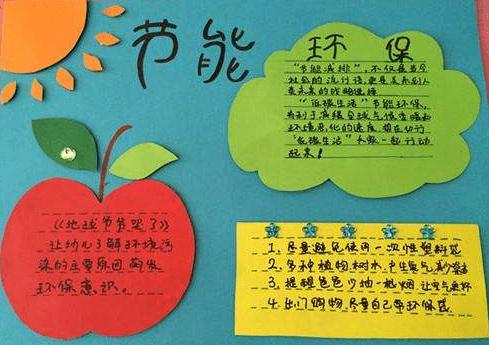 节能
环 保
“节能减排”，不仅是当今
社会的流行语，更是关系到人
类未来的战略选择
“低碳生活”节能环保，
有利于减缓全球气候变暖和
环境恶化的速度
“低碳生活”
起来！
《地球爷爷哭了》
让幼儿了解环境污
染的主要原因，萌发
环保意识。
1. 尽量避免使用一次性塑料袋
2. 多种植物，树木，产生氧气，减少
3. 提醒爸爸少抽一根烟，让空气更好
4. 出门购物，尽量自己带环保袋